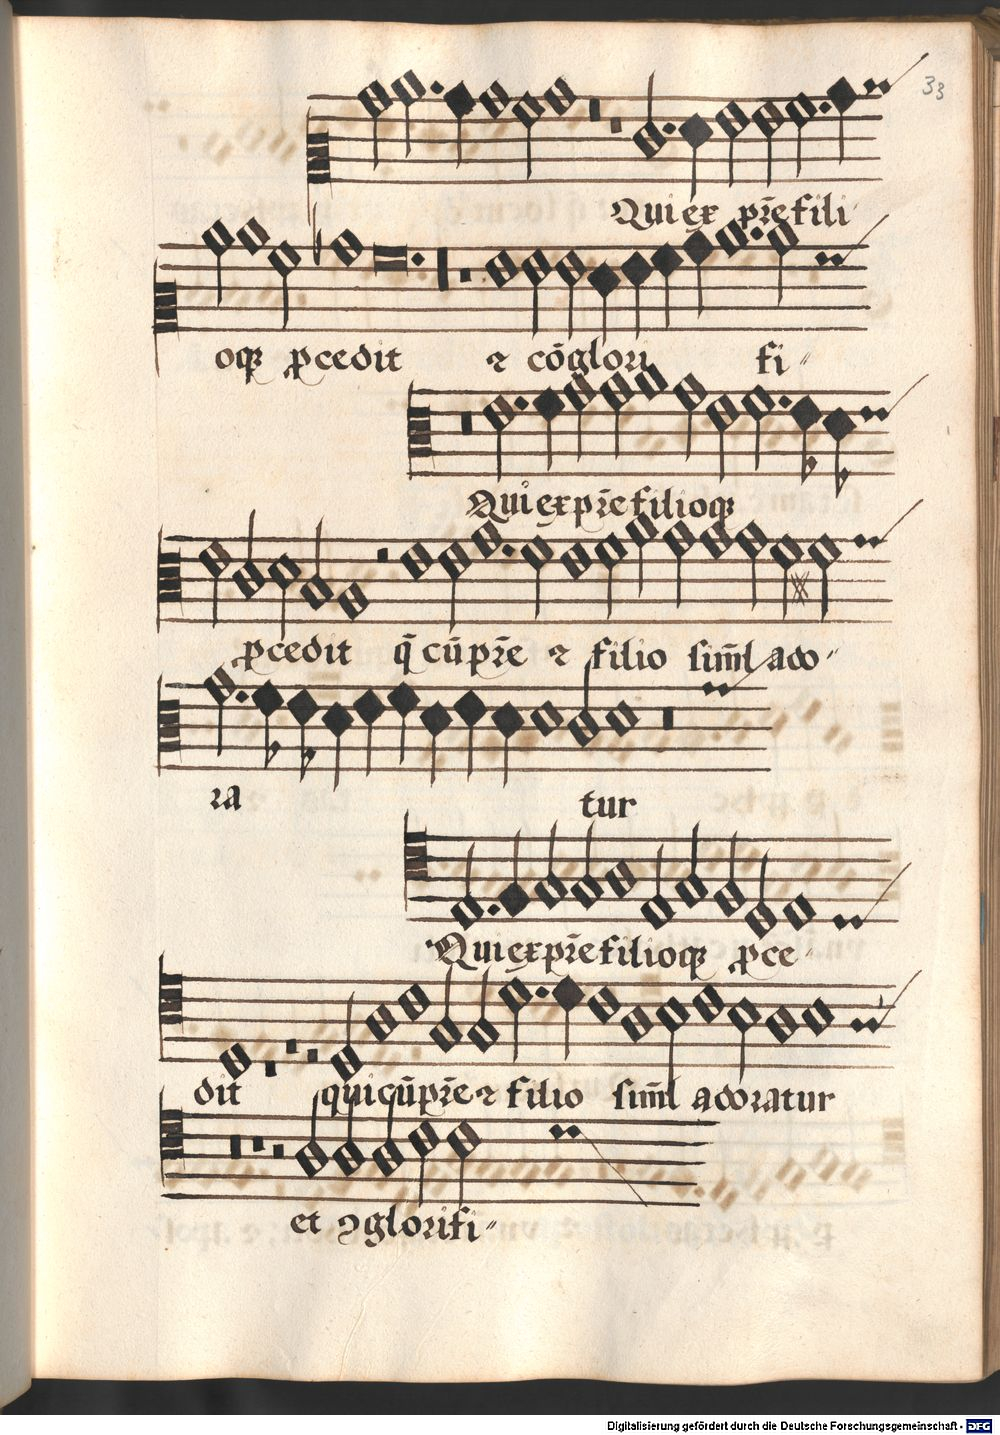 33
Qui ex pr̄e fili
oqꝫ ꝓcedit ⁊ cōglori fi〃
Qui ex pr̄e filioqꝫ
ꝓcedit q̄ cū pr̄e ⁊ filio sim̄l ado〃
ra tur
Qui ex pr̄e filioqꝫ ꝓce〃
dit qui cū pr̄e ⁊ filio sim̄l adoratur
et ꝯglorifi〃
Digitalisierung gefördert durch die Deutsche Forschungsgemeinschaft - DFG